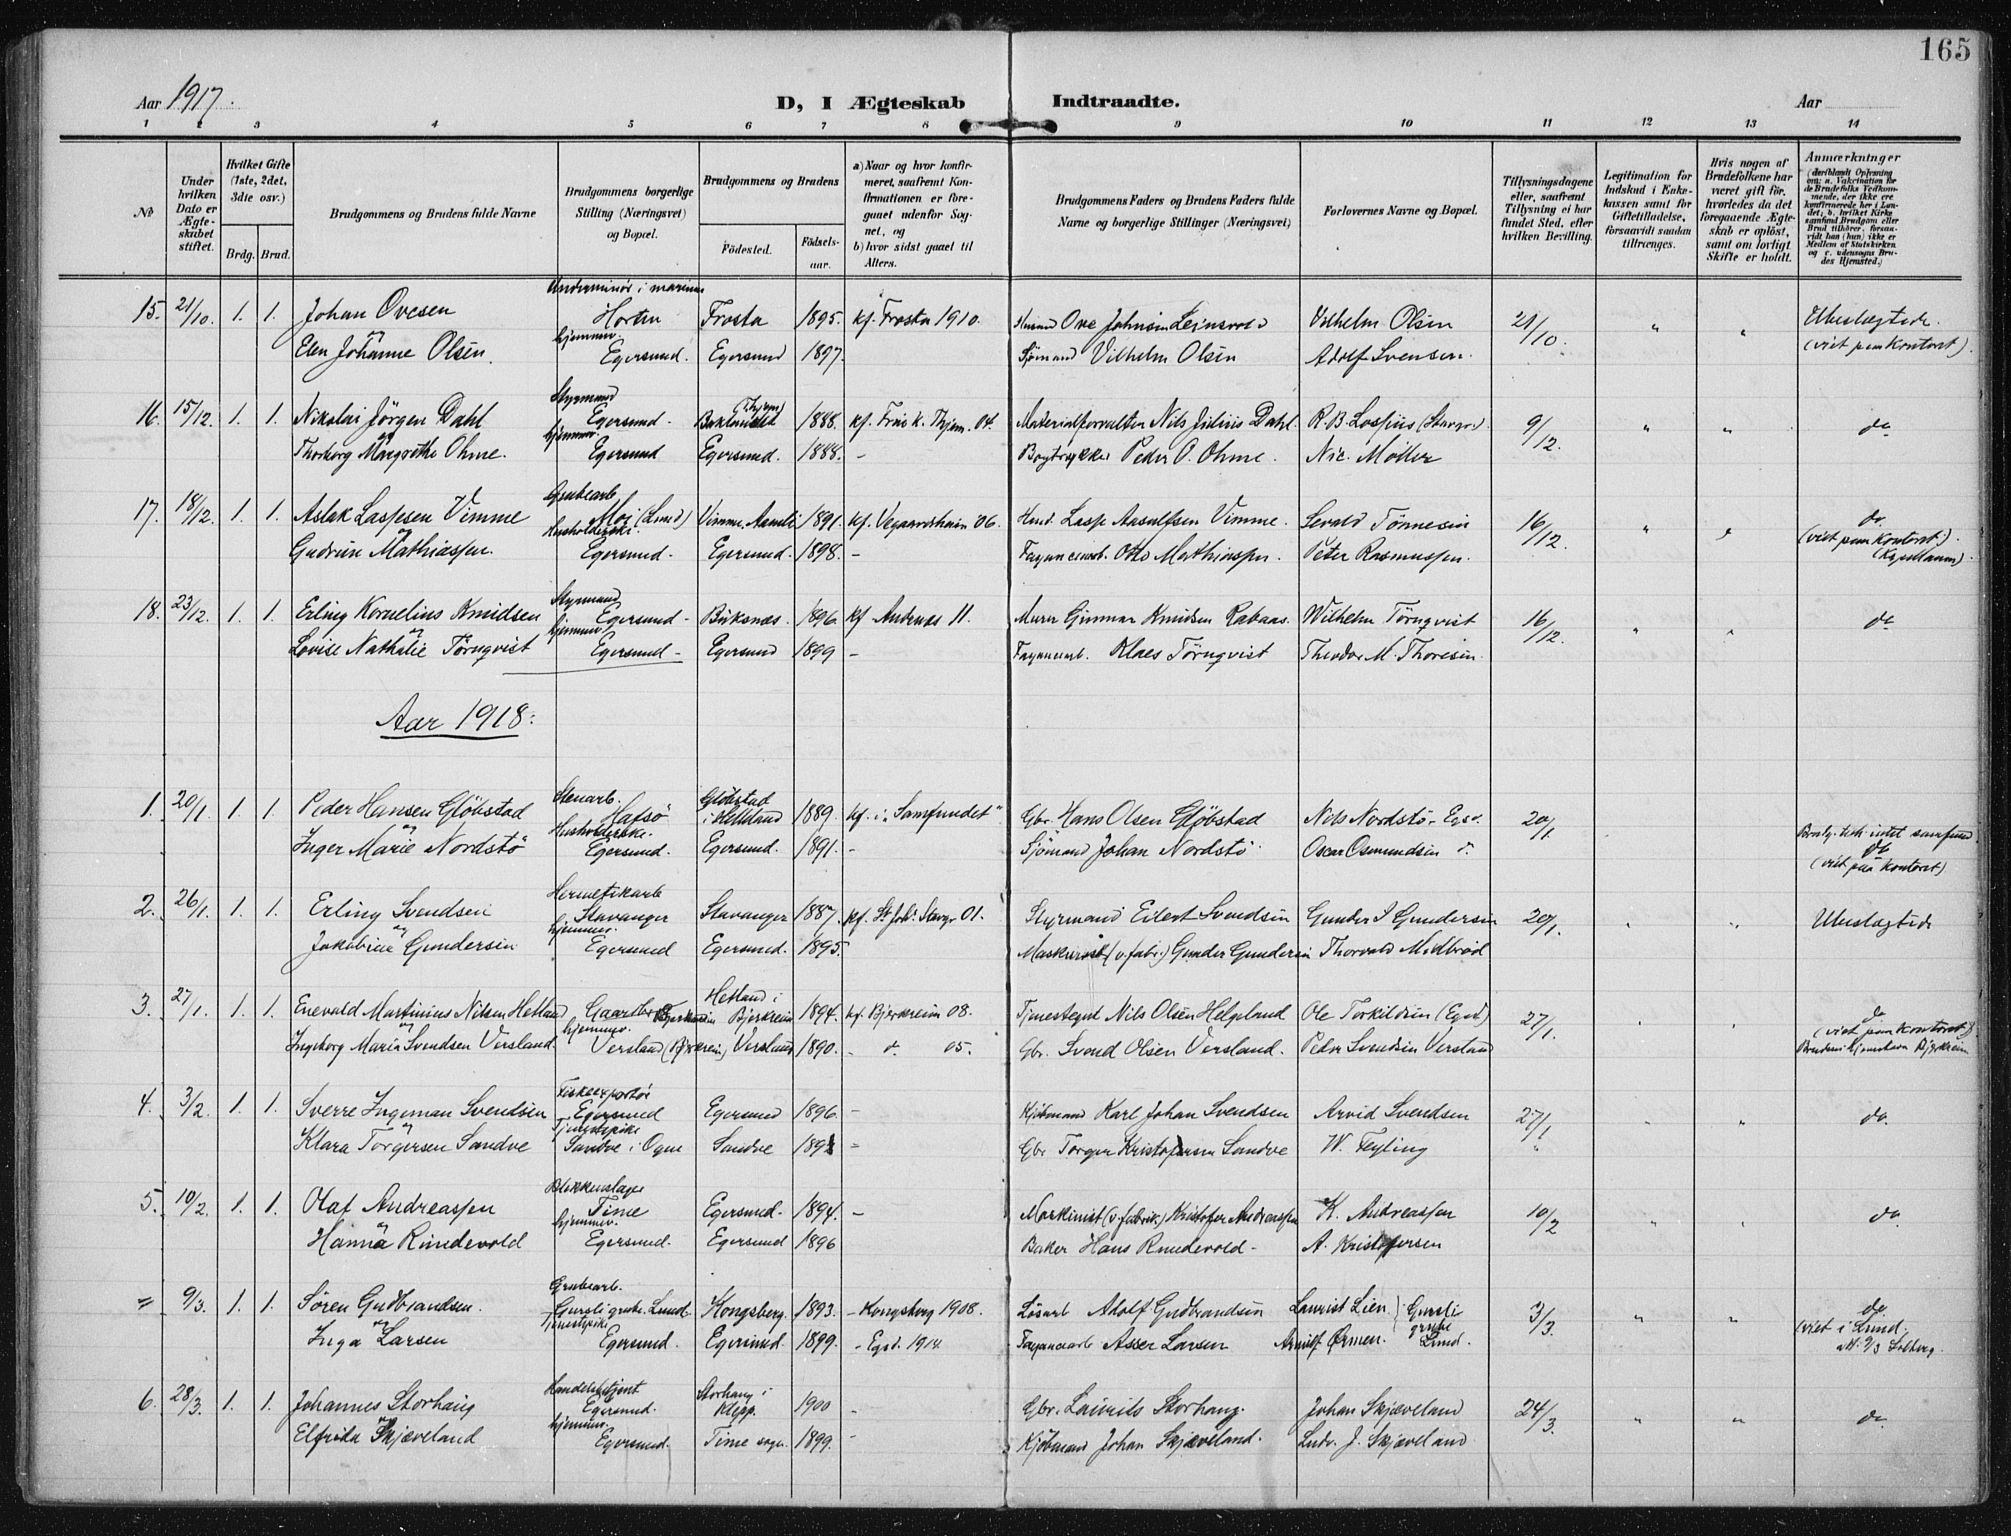 165
Aar 1917.
D, I Ægteskab Indtraadte.
Aar
1 2 3 4 5 6 7 8 9 10 11 12 13 14
No
Under hvilken Dato er Ægteskabet stiftet.
Hvilket Gifte (1ste, 2det, 3die osv.)
Brdg. Brud.
Brudgommens og Brudens fulde Navne
Brudgommens borgerlige Stilling (Næringsvei) og Bopæl.
Brudgommens og Brudens
Födested.
Födselsaar.
a) Naar og hvor konfirmeret, saafremt Konfirmationen er foregaaet udenfor Sognet, og
b) hvor sidst gaaet til Alters.
Brudgommens Faders og Brudens Faders fulde Navne og borgerlige Stillinger (Næringsvei)
Forlovernes Navne og Bopæl.
Tillysningsdagene eller, saafremt Tillysning ei har fundet Sted, efter hvilken Bevilling.
Legitimation for Indskud i Enkekassen samt for Giftetilladelse, forsaavidt saadan tiltrænges.
Hvis nogen af Brudefolkene har været gift för, hvorledes da det foregaaende Ægteskab er oplöst, samt om lovligt Skifte er holdt.
Anmærkninger
15. 21/10. 1. 1. Johan Ovesen Horten Frosta 1895. kf. Frosta 1910. Ove Johnsen Vilhelm Olsen 21/10. " " Ubeslægtede.
og
Elen Johanne Olsen. hjemmev. Egersund. Egersund 1897. Sjømand Vilhelm Olsen Adolf Svensen. (viet paa Kontoret).
16. 15/12. 1. 1. Nikolai Jörgen Dahl Styrmand Egersund 1888. kf. Thjem. 04. Materialforvalter Nils Julius Dahl. R.B. 9/12. " " do
og
Thorborg Margrethe Ohme. hjemmev. Egersund Egersund. 1888. - Bogtrykker Peder O. Ohme. Nic. Møller
17. 18/12. 1. 1. Aslak Laspesen Vimme Grubearb. Moi (Lund) Vimme, Aamli 1891. kf. Vegaardsheien 06. Vimme. Sevald Tönnesen 16/12. " " do.
og
Gudrun Mathiassen. Egersund. Egersund. 1898. - Otto Mathiassen. Peter Rasmussen. (viet paa Kontoret.)
(Kapellanen).
18. 23/12. 1. 1. Erling Kornelius Knudsen Styrmand Egersund - Buksnæs. 1896. kf Andenæs 11. Murer Gunnar Knudsen Rabaas. Wilhelm Törnqvist 16/12. " " do
og
Lovise Nathalie Törnqvist hjemmev. Egersund - Egersund 1899 - Klaes Törnqvist Theodor M. Thoresen.
Aar 1918:
1. 20/1. 1. 1. Peder Hansen Gjöbstad Stenarb. Hafsö i Helleland 1889. kf. i "Samfundet" Gbr. Hans Olsen Nils Nordstö. Egs. 20/1.
og
Inger Marie Nordstö Husholderske. Egersund. Egersund. 1891. - Sjømand Johan Nordstö. Oscar Osmundsen do. do
(viet paa Kontoret)
2. 26/1. 1. 1. Erling Svendsen Hermetikarb Stavanger Stavanger 1887. kf. St. Joh. Stavgr 01. Styrmand Eilert Svendsen Gunder I Gundersen 20/1. " " Ubeslægtede
og
Jakobine Gundersen hjemmev. Egersund Egersund. 1895. Maskinist (v. fabr.) Gunder Gundersen Thorvald Midbröd
3. 27/1. 1. 1. Enevald Martinius Nilsen Hetland Hetland i Bjerkreim 1894. kf. Bjerkreim 08. Nils Olsen Helgeland Ole Torkildsen (Egsd) 27/1. " " do
og
Ingeborg Maria Svendsen Versland. hjemmev. Versland (Bjerkreim) Versland 1890. - do. 05. Gbr. Svend Olsen Versland. Peder Svendsen Versland (viet paa Kontoret)
Brudens Hjemstavn Bjerkreim
4. 3/2. 1. 1. Sverre Ingeman Svendsen Fiskeexportör Egersund Egersund 1896. - Kjøbmand Karl Johan Svendsen Arvid Svendsen 27/1 " " do.
og
Klara Torgersen Sandve Tjenestepike Sandve i Ogne Sandve - Gbr Torger Kristofersen Sandve W. Feyling
5. 10/2. 1. 1. Olaf Andreassen Blikkenslager Time Egersund. 1894. - Maskinist (v. fabrik.) Kristofer Andreassen K. Andreassen 10/2 " " do.
og
Hanna Rundevold hjemmev. Egersund. Egersund 1896 Baker Hans Rundevold - A. Kristofersen
9/3. 1. 1. Sören Gudbrandsen. Grubearb. Gursli grube. Lund. Kongsberg. 1893. - Kongsberg 1908. Løsarb Adolf Gudbrandsen Laurist Lien } Gursli grube 3/3. " " do
og
Inga Larsen Tjenestepike Egersund. Egersund. 1899. - Egsd. 1914 Asser Larsen Arnulf Ørmen. Lund. (viet i Lund.
6. 28/3. 1. 1. Johannes Storhaug Handelsbetjent Egersund. Storhaug i Klepp. 1900 - Gbr. Laurits Storhaug. Johan Skjæveland 24/3. " " do.
og
Elfrida Skjæveland hjemmev. Egersund. Time sogn. 1899. - Kjøbmand Johan Skjæveland. Ludv. J. Skjæveland